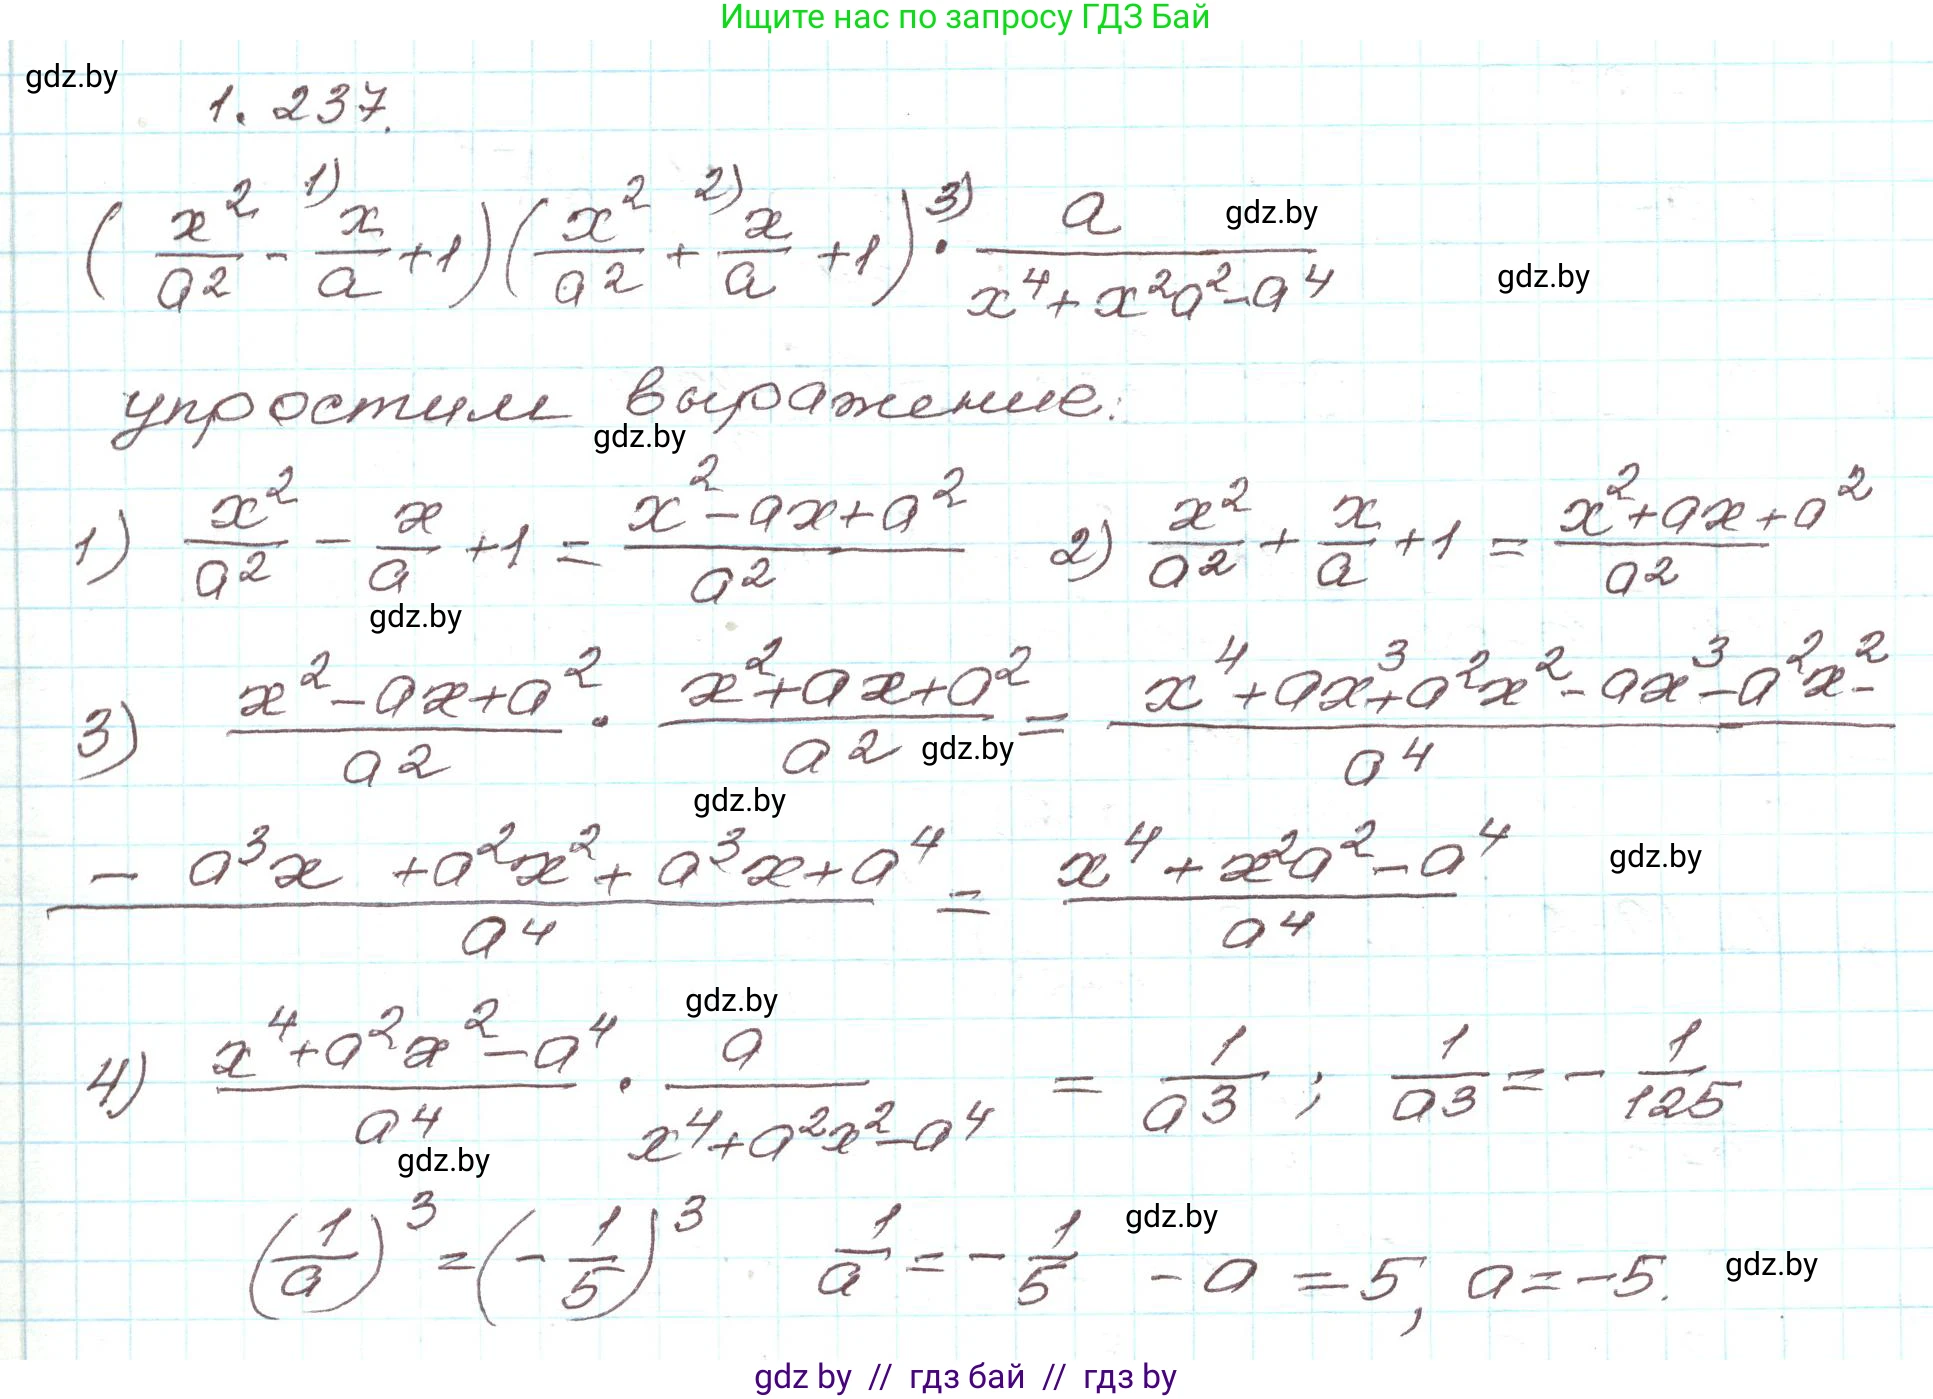 Ищите нас по запросу ГДЗ Бай
gdz.by
1.237.
(x²/a² - x/a + 1)(x²/a² + x/a + 1) · a/(x⁴ + x²a² - a⁴)
1) 2) 3)
gdz.by
gdz.by
упростим выражение:
gdz.by
1) x²/a² - x/a + 1 = (x² - ax + a²)/a² 2) x²/a² + x/a + 1 = (x² + ax + a²)/a²
gdz.by
3) (x² - ax + a²)/a² · (x² + ax + a²)/a² = (x⁴ + ax³ + a²x² - ax³ - a²x² -)/a⁴
gdz.by
gdz.by
(- a³x + a²x² + a³x + a⁴)/a⁴ = (x⁴ + x²a² - a⁴)/a⁴
gdz.by
gdz.by
4) (x⁴ + a²x² - a⁴)/a⁴ · a/(x⁴ + a²x² - a⁴) = 1/a³ ; 1/a³ = - 1/125
gdz.by
(1/a)³ = (- 1/5)³ 1/a = - 1/5 - a = 5, a = -5.
gdz.by
gdz.by
gdz by // гдз бай // гдз by